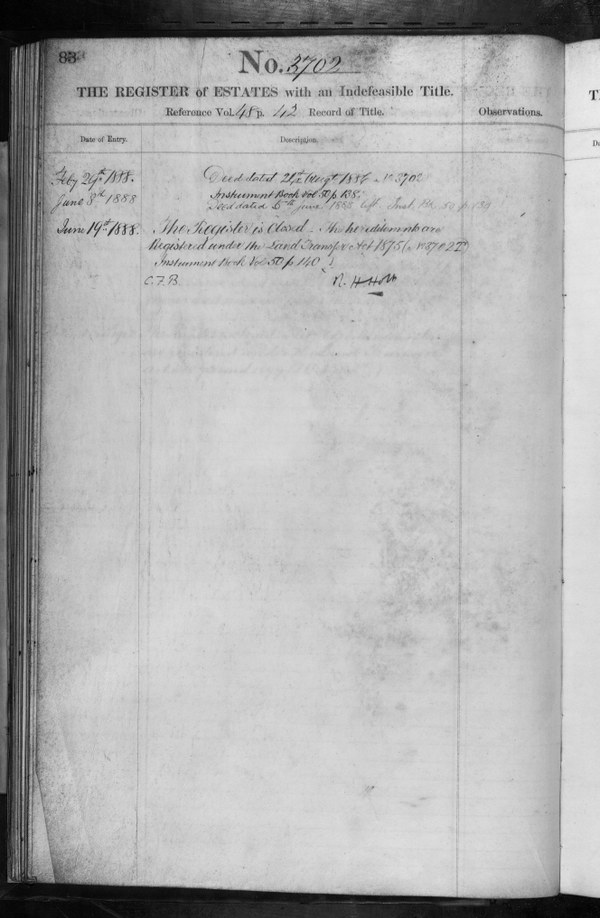 83
No. 3702
THE REGISTER of ESTATES with an Indefeasible Title.
Reference Vol. 48 p. 42 Record of Title.
Observations.
Date of Entry.
Description.
Feby 29th 1888. Deed dated Augt No 3702
Instrument Book Vol 50 p 138.
June 8th 1888 Deed dated 5th June 1888 50 p 139
June 19th 1888. The Register is Closed. The hereditaments are
Registered under the Land Transfer Act 1875
Instrument Book Vol 50 p 140
C.F.B. R. H. Holt